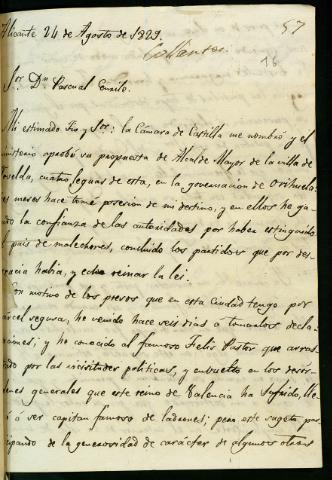 Alicante 24 de Agosto de 1829.
57
Collantes.
16
Sor. Dn. Pascual Enrile.
Mi estimado Tio, y Sor.: la Cámara de Castilla me nombró y el
ministerio aprobó su propuesta de Alcalde Mayor de la villa de
cuatro leguas de esta, en la governacion de Orihuela:
meses hace tomé posesion de mi destino, y en ellos he ga
la confianza de las autoridades por haber estinguido
pais de malechores, concluido los partidos que por des
gracia habia, y echo reinar la lei.
Con motivo de los presos que en esta Ciudad tengo por
carcel segura, he venido hace seis dias a tomarles decla
raciones; y he conocido al famoso Felis Pastor que arras
trado por las politicas, y envuelto en los desór
denes generales que este reino de Valencia ha sufrido, lle
gó á ser capitan famoso de ladrones; pero este sugeto par
ticipando de la generosidad de carácter de algunos otros